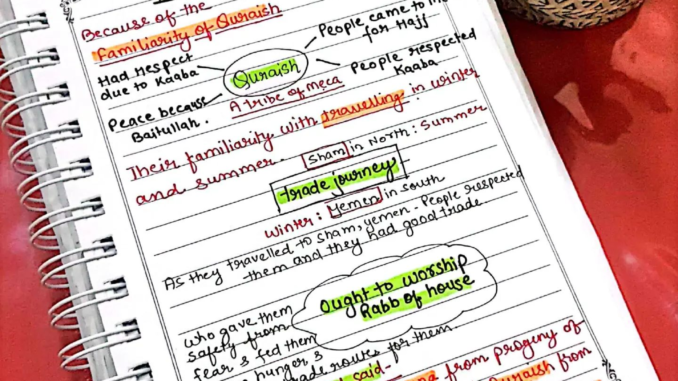 Because of the
Familiarity of Quraish
People came to
for Hajj
Had Respect
due to Kaaba
Quraish
People respected
Kaaba
Peace because
Baitullah.
A tribe of meca
Their familiarity with travelling in winter
and summer.
Sham in North: Summer
trade journey
Winter: Yemen in south
As they travelled to sham, yemen - People respected
them and they had good trade
Ought to worship
Rabb of house
who gave them
safety from
fear & fed them
hunger &
trade routes for them.
said-
from progeny of
from